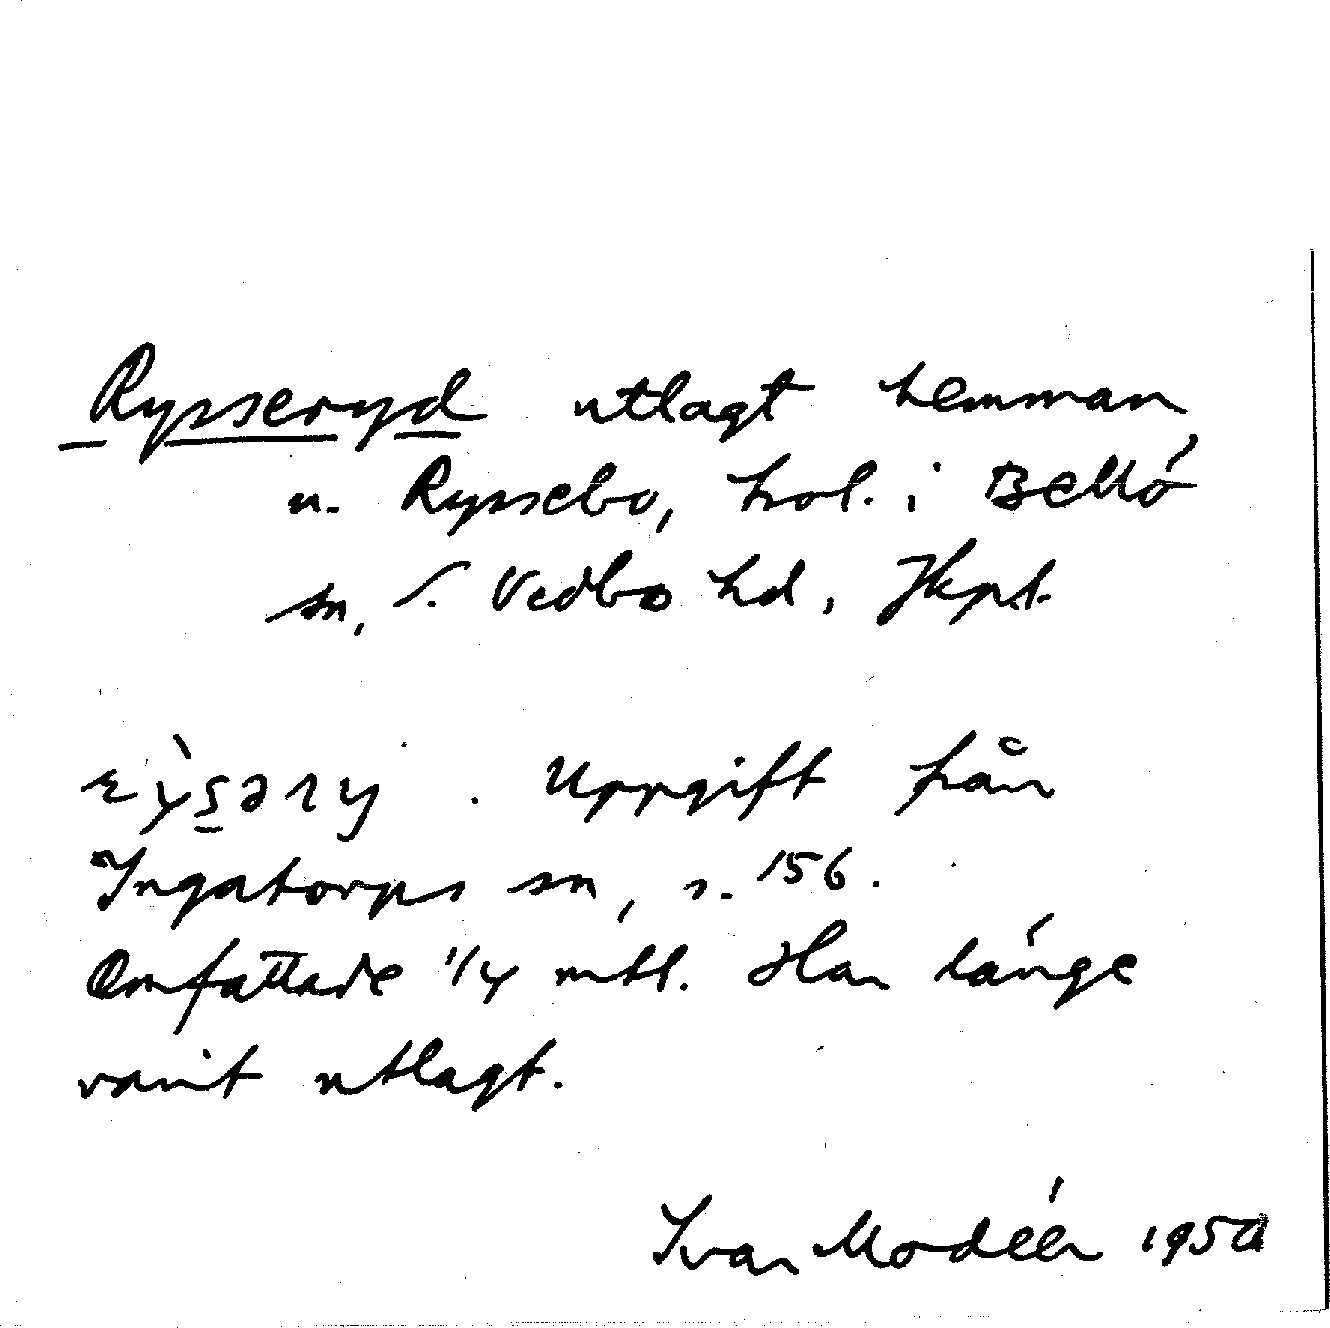 Rysseryd utlagt hemman
u. Ryssebo, hol. i Bellö
sn, S. Vedbo hd, Jkpl.
Uppgift från
Ingatorps sn, s. 156.
Omfattade 1/4 mtl. Har länge
varit utlagt.
Ivar Modéer 1950